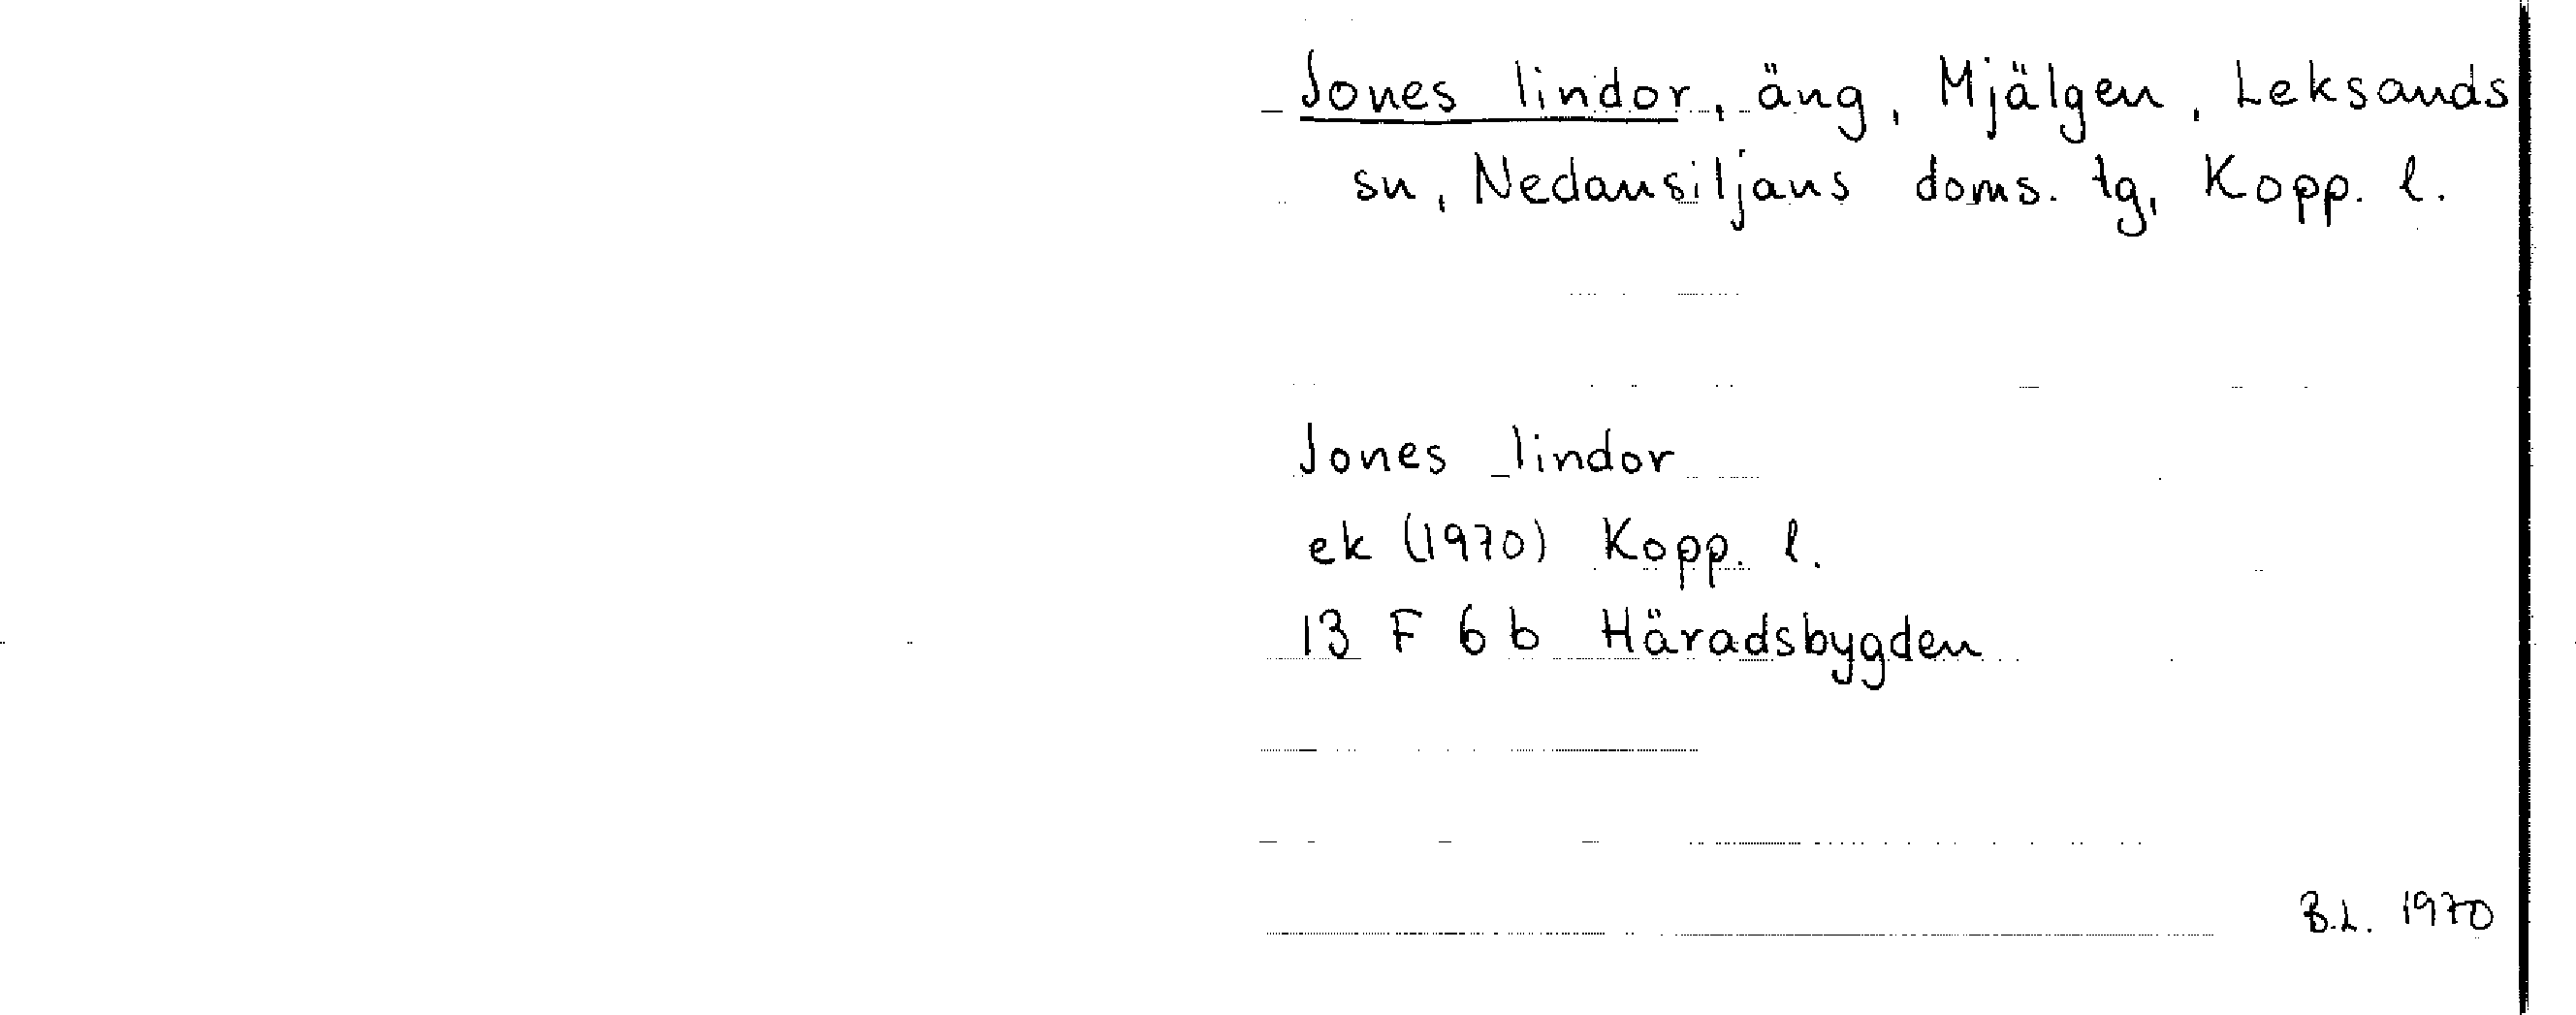 Jones lindor, äng, Mjälgen, Leksands
sn, Nedansiljans doms. tg, Kopp. l.
Jones lindor
ek (1970) Kopp. l.
13 F 6 b Häradsbygden
B.L. 1970